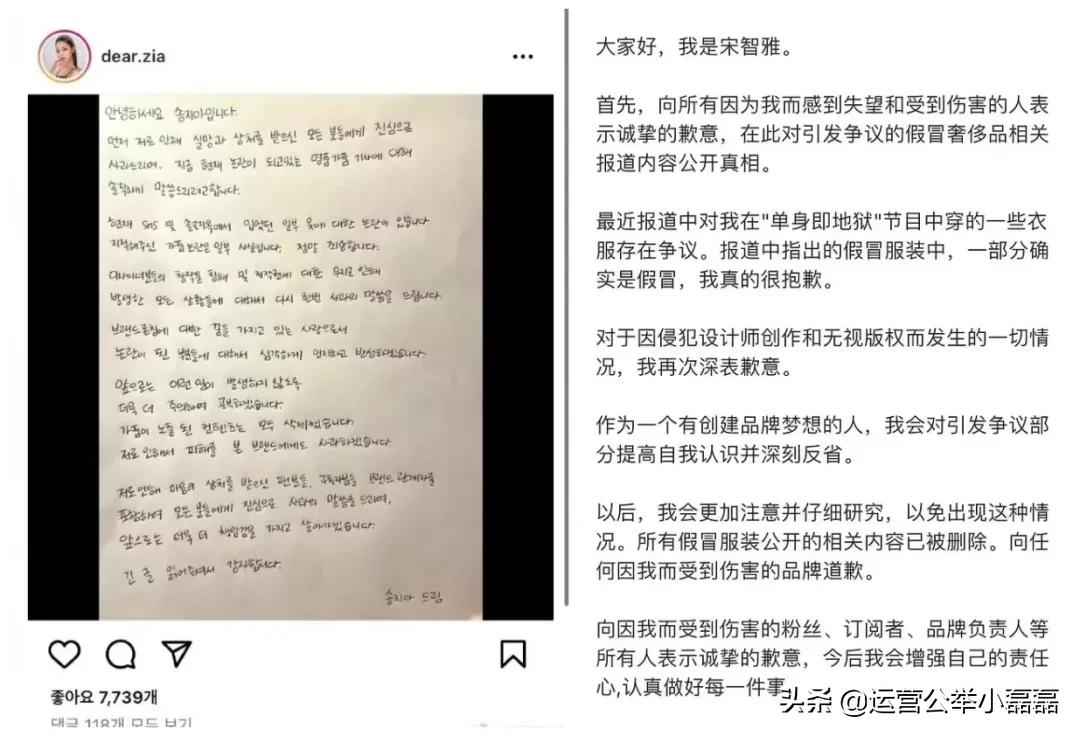 dear.zia
안녕하세요 송지아입니다.
먼저 저로 인해 실망과 상처를 받으신 모든 분들에게 진심으로
사과드리며, 지금 현재 논란이 되고있는 명품가품 기사에 대해
솔직하게 말씀드리려고합니다.
현재 SNS 및 솔로지옥에서 입었던 일부 옷에 대한 논란이 있습니다
지적해주신 가품논란은 일부 사실입니다. 정말 죄송합니다.
디자이너분들의 창작물 침해 및 저작권에 대한 무지로 인해
발생한 모든 상황들에 대해서 다시 한번 사과의 말씀을 드립니다.
브랜드론칭에 대한 꿈을 가지고 있는 사람으로서
논란이 된 부분들에 대해서 심각하게 인지하고 반성하겠습니다
앞으로는 이런 일이 발생하지 않도록
더욱 더 주의하며 공부하겠습니다.
가품이 노출 된 컨텐츠는 모두 삭제했습니다.
저로 인해서 피해를 본 브랜드에게도 사과하겠습니다
저로인해 마음의 상처를 받으신 팬분들, 구독자분들 브랜드 관계자를
포함하여 모든 분들에게 진심으로 사과의 말씀을 드리며,
앞으로는 더욱 더 책임감을 가지고 살아가겠습니다.
긴 글 읽어주셔서 감사합니다.
송지아 드림
좋아요 7,739개
댓글 118개 모두 보기
大家好，我是宋智雅。
首先，向所有因为我而感到失望和受到伤害的人表
示诚挚的歉意，在此对引发争议的假冒奢侈品相关
报道内容公开真相。
最近报道中对我在"单身即地狱"节目中穿的一些衣
服存在争议。报道中指出的假冒服装中，一部分确
实是假冒，我真的很抱歉。
对于因侵犯设计师创作和无视版权而发生的一切情
况，我再次深表歉意。
作为一个有创建品牌梦想的人，我会对引发争议部
分提高自我认识并深刻反省。
以后，我会更加注意并仔细研究，以免出现这种情
况。所有假冒服装公开的相关内容已被删除。向任
何因我而受到伤害的品牌道歉。
向因我而受到伤害的粉丝、订阅者、品牌负责人等
所有人表示诚挚的歉意，今后我会增强自己的责任
心,认真做好每一件事
头条 @运营公举小磊磊